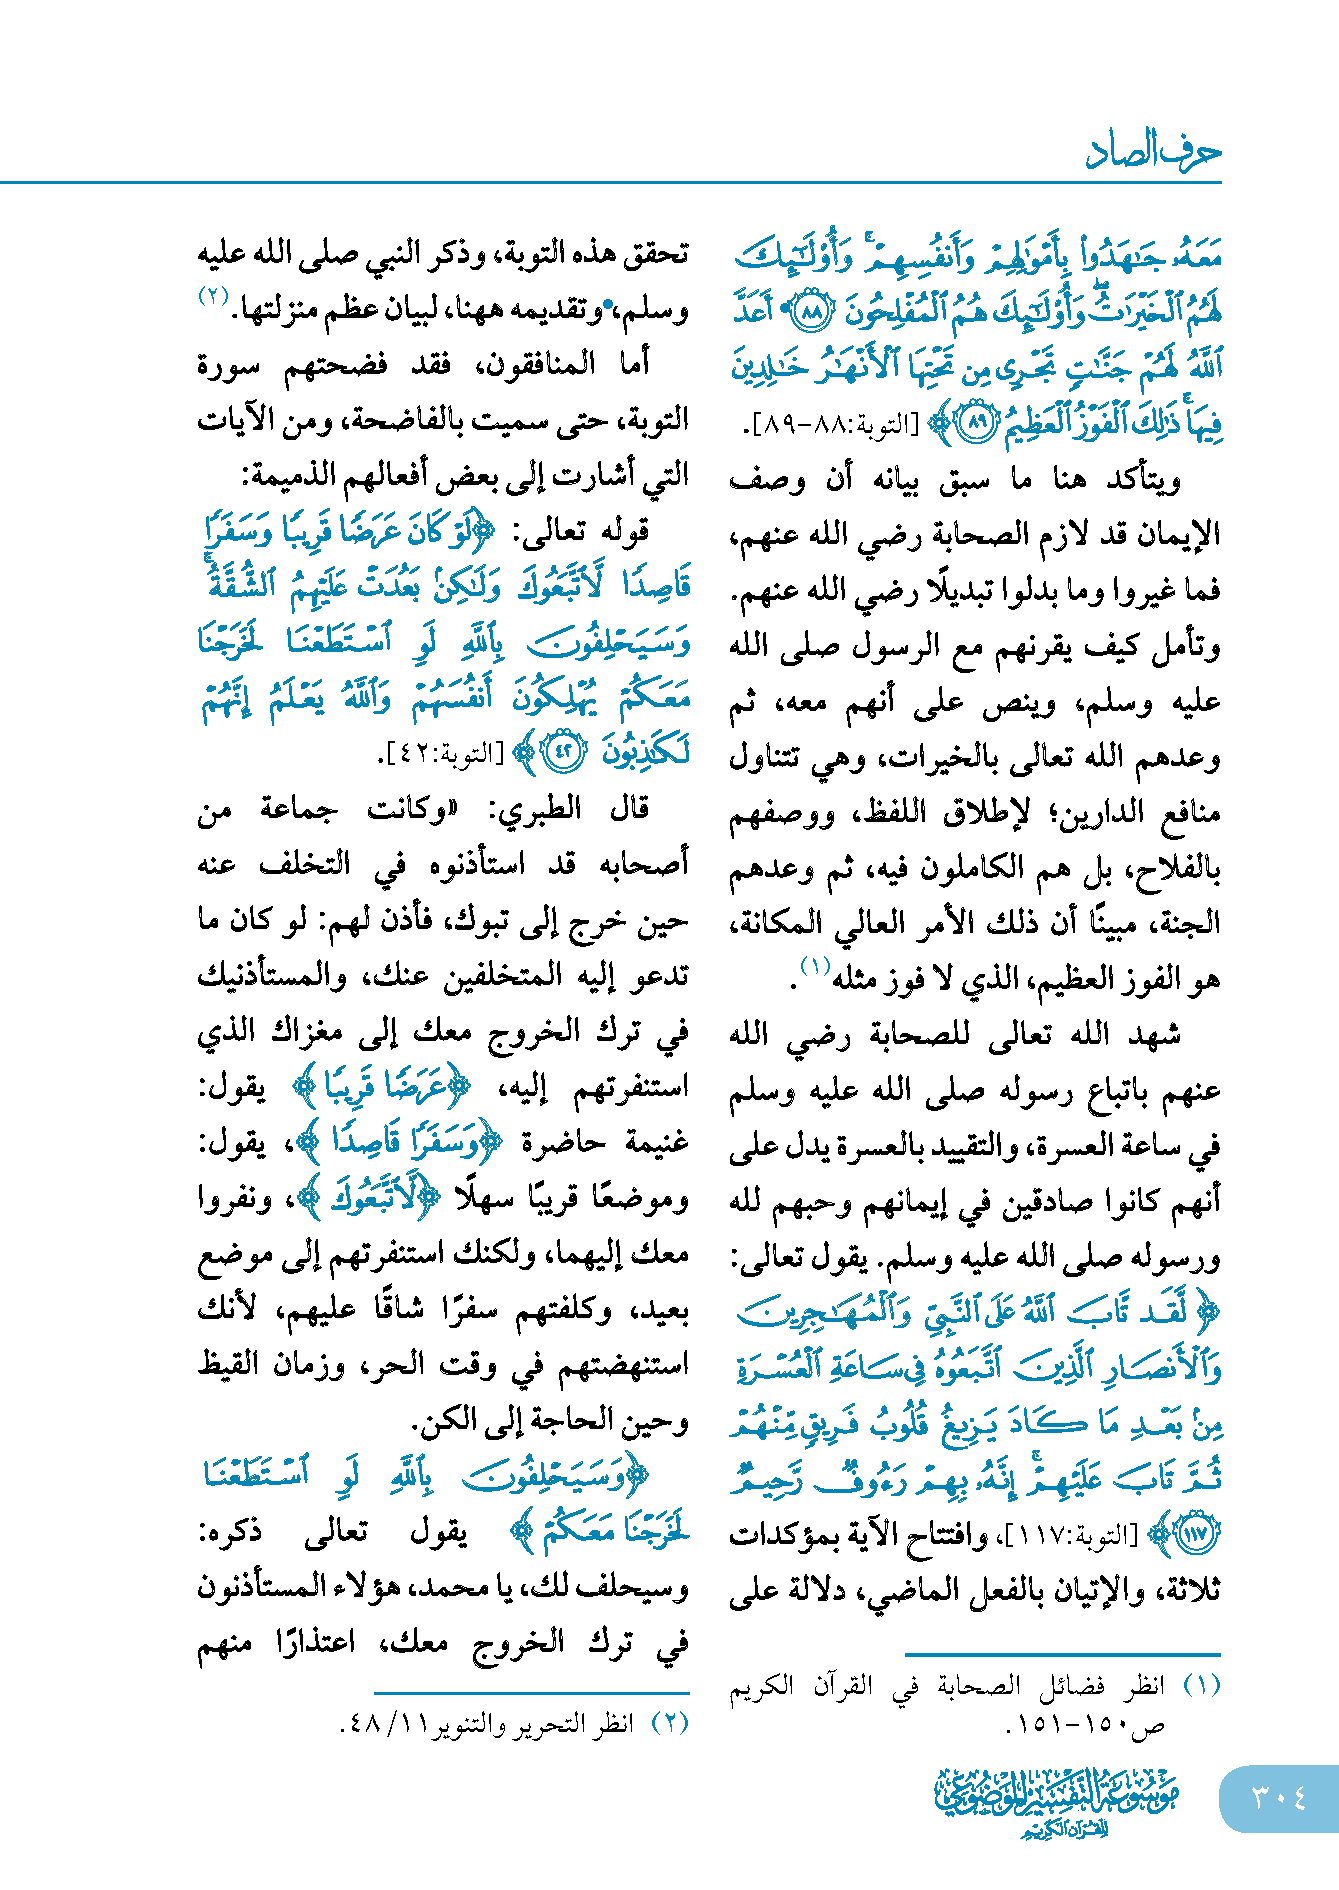 حرف الصاد
مَعَهُۥ جَٰهَدُوا۟ بِأَمْوَٰلِهِمْ وَأَنفُسِهِمْ ۚ وَأُو۟لَٰٓئِكَ
لَهُمُ ٱلْخَيْرَٰتُ ۖ وَأُو۟لَٰٓئِكَ هُمُ ٱلْمُفْلِحُونَ ﴿٨٨﴾ أَعَدَّ
ٱللَّهُ لَهُمْ جَنَّٰتٍ تَجْرِى مِن تَحْتِهَا ٱلْأَنْهَٰرُ خَٰلِدِينَ
فِيهَا ۚ ذَٰلِكَ ٱلْفَوْزُ ٱلْعَظِيمُ ﴿٨٩﴾ [التوبة:٨٨-٨٩].
ويتأكد هنا ما سبق بيانه أن وصف
الإيمان قد لازم الصحابة رضي الله عنهم،
فما غيروا وما بدلوا تبديلًا رضي الله عنهم.
وتأمل كيف يقرنهم مع الرسول صلى الله
عليه وسلم، وينص على أنهم معه، ثم
وعدهم الله تعالى بالخيرات، وهي تتناول
منافع الدارين؛ لإطلاق اللفظ، ووصفهم
بالفلاح، بل هم الكاملون فيه، ثم وعدهم
الجنة، مبينًا أن ذلك الأمر العالي المكانة،
هو الفوز العظيم، الذي لا فوز مثله(١).
شهد الله تعالى للصحابة رضي الله
عنهم باتباع رسوله صلى الله عليه وسلم
في ساعة العسرة، والتقييد بالعسرة يدل على
أنهم كانوا صادقين في إيمانهم وحبهم لله
ورسوله صلى الله عليه وسلم. يقول تعالى:
﴿لَّقَد تَّابَ ٱللَّهُ عَلَى ٱلنَّبِىِّ وَٱلْمُهَٰجِرِينَ
وَٱلْأَنصَارِ ٱلَّذِينَ ٱتَّبَعُوهُ فِى سَاعَةِ ٱلْعُسْرَةِ
مِنۢ بَعْدِ مَا كَادَ يَزِيغُ قُلُوبُ فَرِيقٍ مِّنْهُمْ
ثُمَّ تَابَ عَلَيْهِمْ ۚ إِنَّهُۥ بِهِمْ رَءُوفٌ رَّحِيمٌ
﴿١١٧﴾ [التوبة:١١٧]، وافتتاح الآية بمؤكدات
ثلاثة، والإتيان بالفعل الماضي، دلالة على
(١) انظر فضائل الصحابة في القرآن الكريم
ص١٥٠-١٥١.
تحقق هذه التوبة، وذكر النبي صلى الله عليه
وسلم، وتقديمه ههنا، لبيان عظم منزلتها.(٢)
أما المنافقون، فقد فضحتهم سورة
التوبة، حتى سميت بالفاضحة، ومن الآيات
التي أشارت إلى بعض أفعالهم الذميمة:
قوله تعالى: ﴿لَوْ كَانَ عَرَضًا قَرِيبًا وَسَفَرًا
قَاصِدًا لَّٱتَّبَعُوكَ وَلَٰكِنۢ بَعُدَتْ عَلَيْهِمُ ٱلشُّقَّةُ ۚ
وَسَيَحْلِفُونَ بِٱللَّهِ لَوِ ٱسْتَطَعْنَا لَخَرَجْنَا
مَعَكُمْ يُهْلِكُونَ أَنفُسَهُمْ وَٱللَّهُ يَعْلَمُ إِنَّهُمْ
لَكَٰذِبُونَ ﴿٤٢﴾ [التوبة:٤٢].
قال الطبري: «وكانت جماعة من
أصحابه قد استأذنوه في التخلف عنه
حين خرج إلى تبوك، فأذن لهم: لو كان ما
تدعو إليه المتخلفين عنك، والمستأذنيك
في ترك الخروج معك إلى مغزاك الذي
استنفرتهم إليه، ﴿عَرَضًا قَرِيبًا﴾ يقول:
غنيمة حاضرة ﴿وَسَفَرًا قَاصِدًا﴾، يقول:
وموضعًا قريبًا سهلًا ﴿لَّٱتَّبَعُوكَ﴾، ونفروا
معك إليهما، ولكنك استنفرتهم إلى موضع
بعيد، وكلفتهم سفرًا شاقًا عليهم، لأنك
استنهضتهم في وقت الحر، وزمان القيظ
وحين الحاجة إلى الكن.
﴿وَسَيَحْلِفُونَ بِٱللَّهِ لَوِ ٱسْتَطَعْنَا
لَخَرَجْنَا مَعَكُمْ﴾ يقول تعالى ذكره:
وسيحلف لك، يا محمد، هؤلاء المستأذنون
في ترك الخروج معك، اعتذارًا منهم
(٢) انظر التحرير والتنوير١١/ ٤٨.
موسوعة التفسير الموضوعي
للقرآن الكريم
٣٠٤